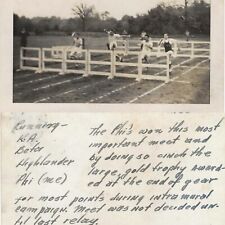 Running -
K.A.
Beta
Highlander
Phi (me)
The Phi's won this most
important meet and
by doing so cinch the
large, gold trophy award-
ed at the end of year
for most points during intramural
campaign. Meet was not decided un-
til last relay.